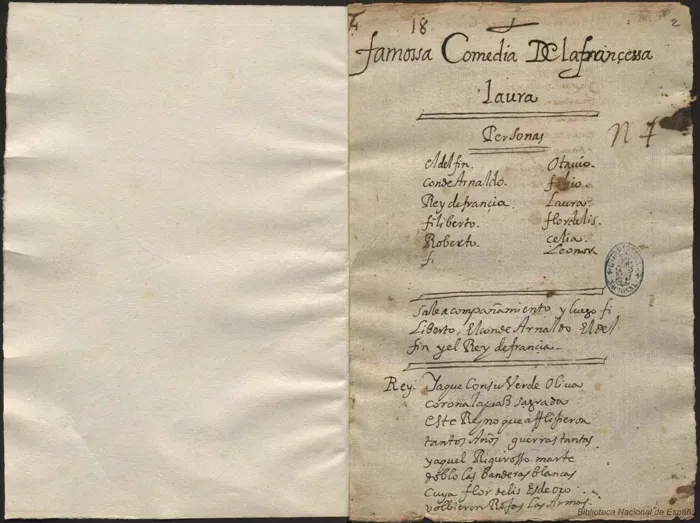 4 18 2
famossa Comedia De la françessa
laura
Personas
N 4
el delfin. Otauio.
conde Arnaldo. fabio.
Rey de françia. Laura.
filiberto. flordelis.
Roberto. celia.
fi Leonora
Sale acompañamiento y luego fi
Liberto, El conde Arnaldo El del
fin y el Rey de françia.
Rey. Ya que Con su Verde Oliua
corona la paz sagrada
este Reyno que affligieron
tantos Años guerras tantas
ya que el Riguroso marte
doblo las banderas blancas
cuya flor de lis Es de oro
volbieron Rojas las Armas
Biblioteca Nacional de España